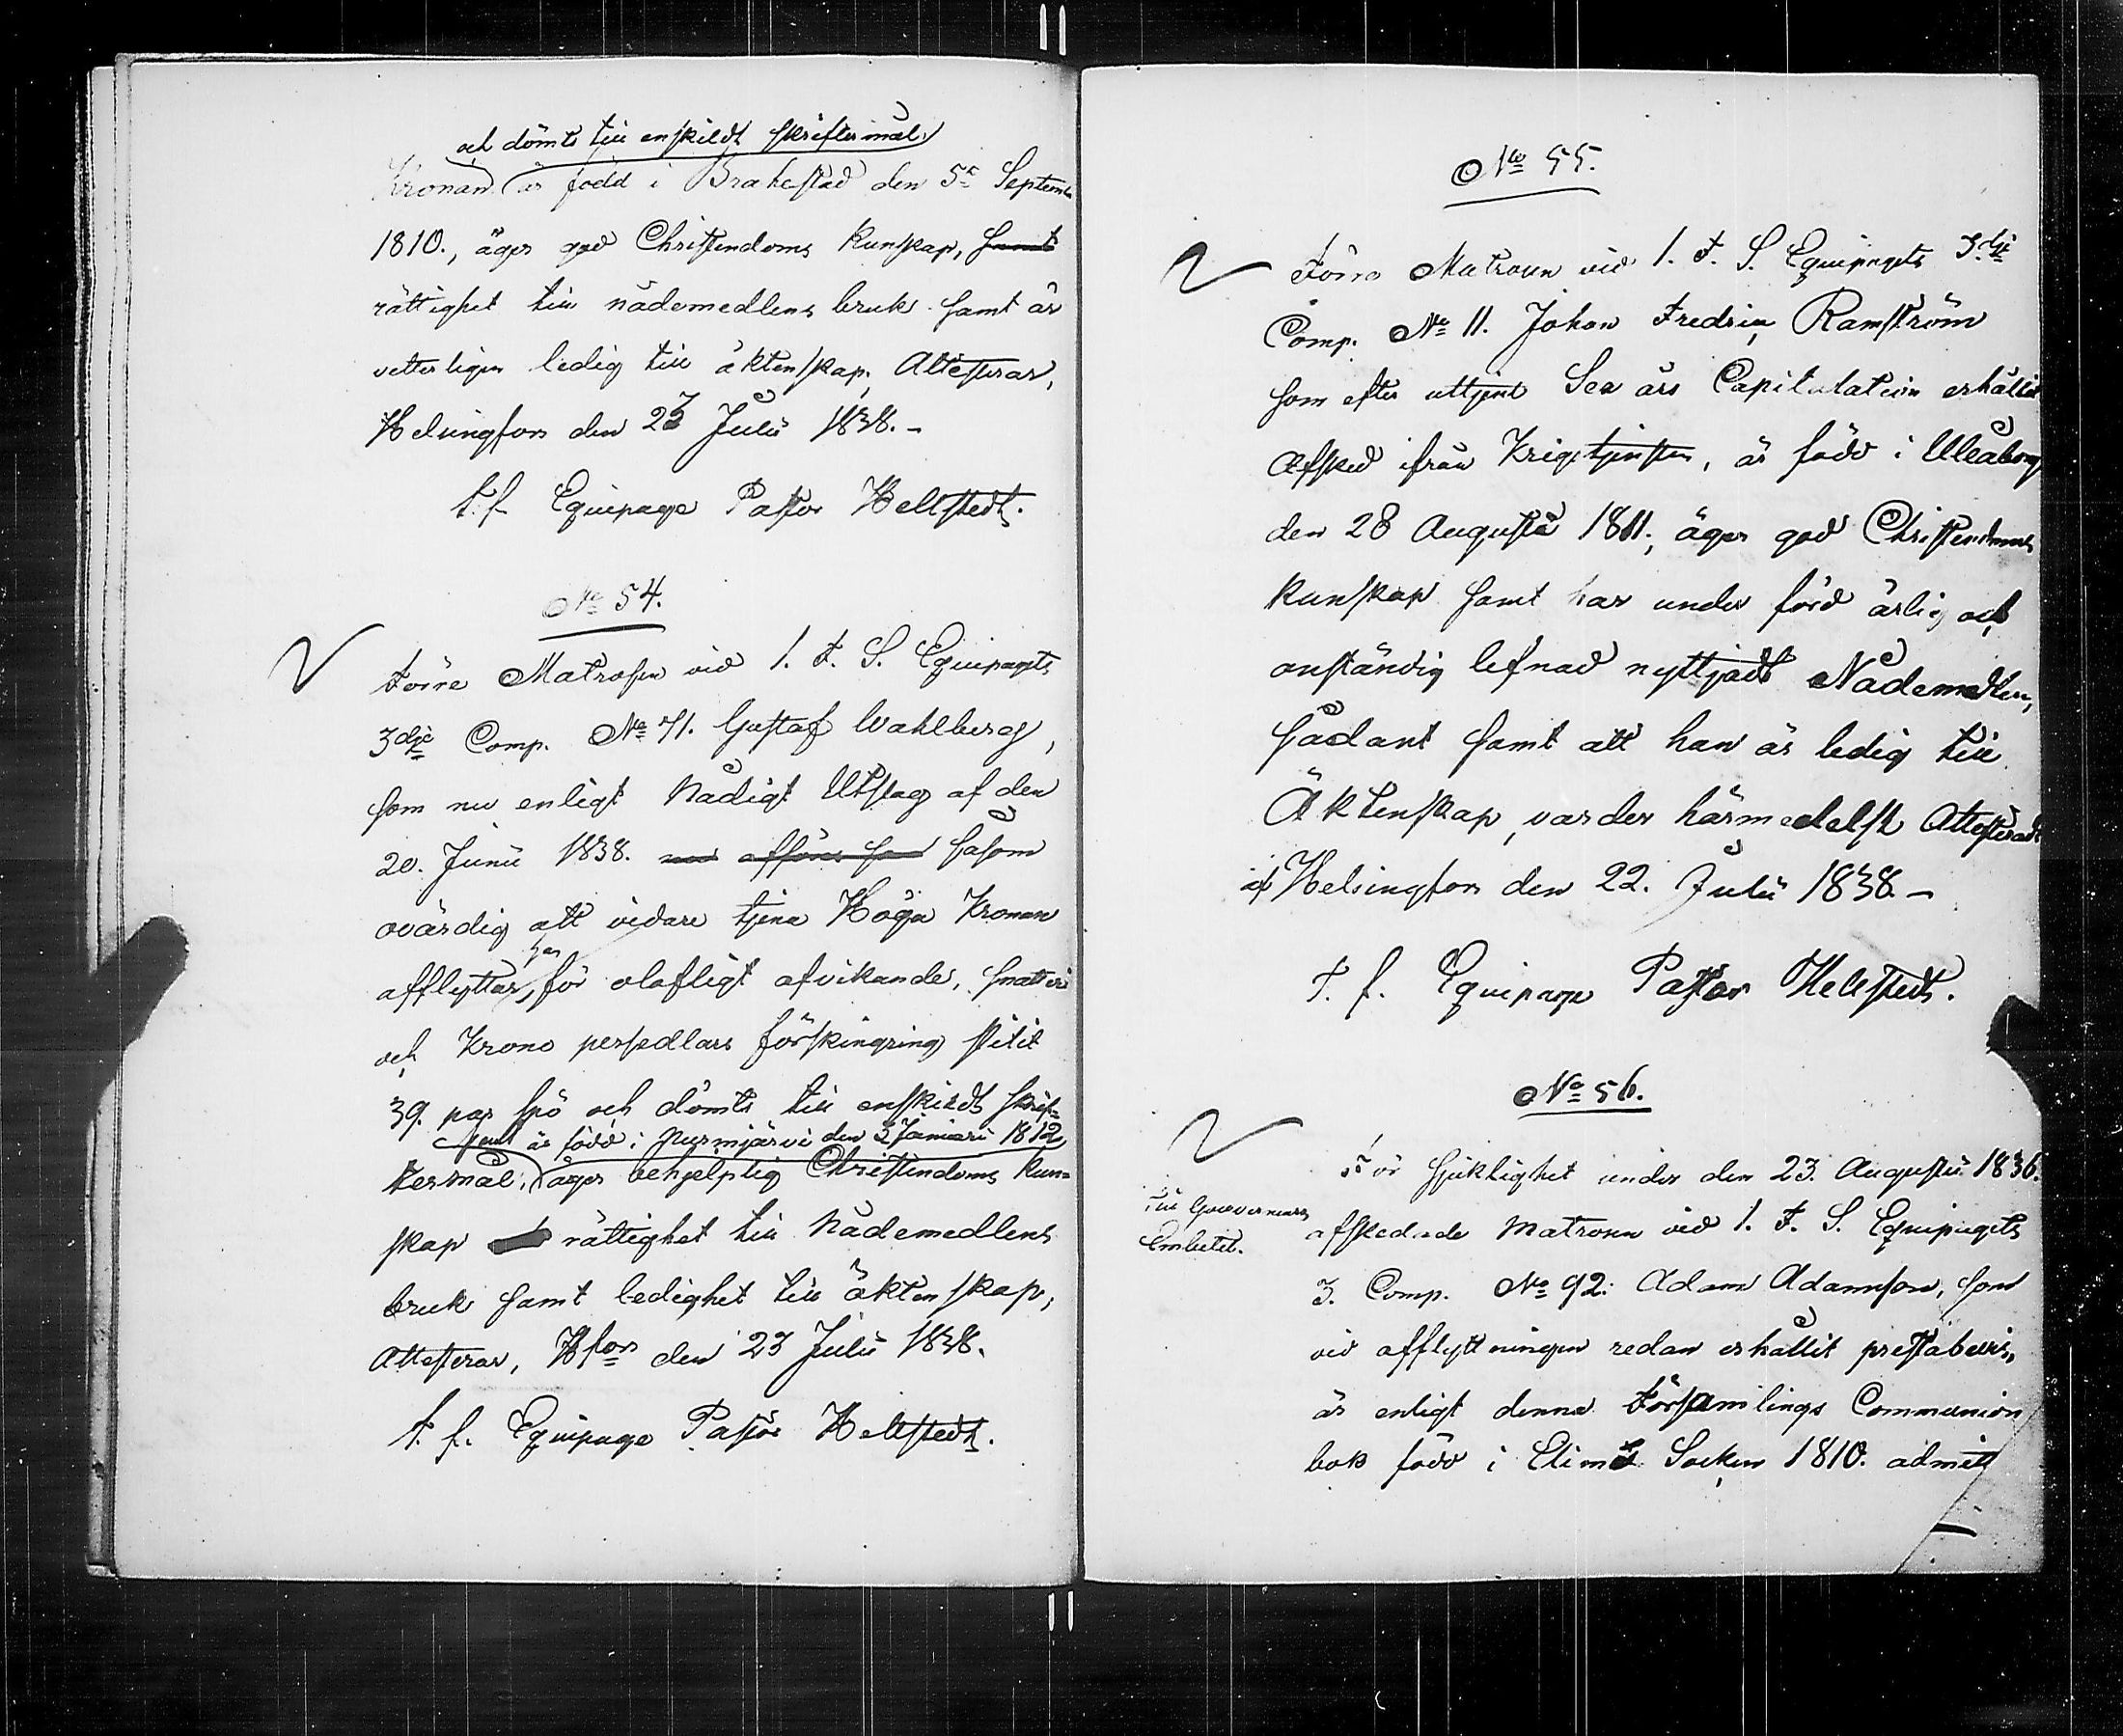 och dömts till enskildt skriftermål
Kronan är född i Brahestad den 5 September
1810., äger god Christendoms kunskap, samt
rättighet till nådemedlens bruk samt är
vetterligen ledig till äktenskap; Attesterar,
Helsingfors den 23 Julii 1838. –
t.f. Equipage Pastor Hellstedt.
No 54.
Förre Matrosen vid 1. F. S. Equipagets
3dje Comp. No 71. Gustaf Wahlberg,
som nu enligt Nådigt Utslag af den
20. Junii 1838. såsom
ovärdig att vidare tjena Höga Kronan
har
afflyttar, för olofligt afvikande, snatteri
och Krono persedlars förskingring slitit
39. par spö och dömts till enskildt skrif-
samt är född i Nurmijärvi den 3 Januari 1812
termål, äger behjelplig Christendoms kun-
skap rättighet till Nådemedlens
bruk samt ledighet till äktenskap,
Attesterar, Hfors den 23 Julii 1838.
t. f. Equipage Pastor Hellstedt.
No 55.
Förre Matrosen vid 1. F. S. Equipagets 3dje
Comp. No 11. Johan Fredric Ramström
som efter uttjent Sex års Capitulation erhållit
Afsked ifrån Krigstjensten, är född i Uleåborg
den 28 Augusti 1811., äger god Christendoms
kunskap samt har under förd ärlig och
anständig lefnad nyttjadt Nådemedlen,
sådant samt att han är ledig till
Äktenskap, varder härmedelst Attesteradt
af Helsingfors den 22. Julii 1838. –
T. f. Equipage Pastor Hellstedt.
No 56.
För sjuklighet under den 23. Augusti 1836.
Till Gouverneurs
Embetet.
afskedade Matrosen vid 1. F. S. Equipagets
3. Comp. No 92. Adam Adamsson, som
vid afflyttningen redan erhållit prestabevis,
är enligt denna Församlings Communion
bok född i Elimä Socken 1810. admitt